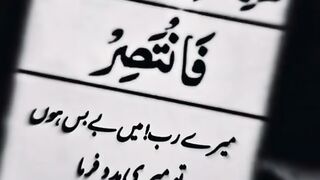 فَانْتَصِرْ
میرے رب! میں بے بس ہوں
تو میری مدد فرما